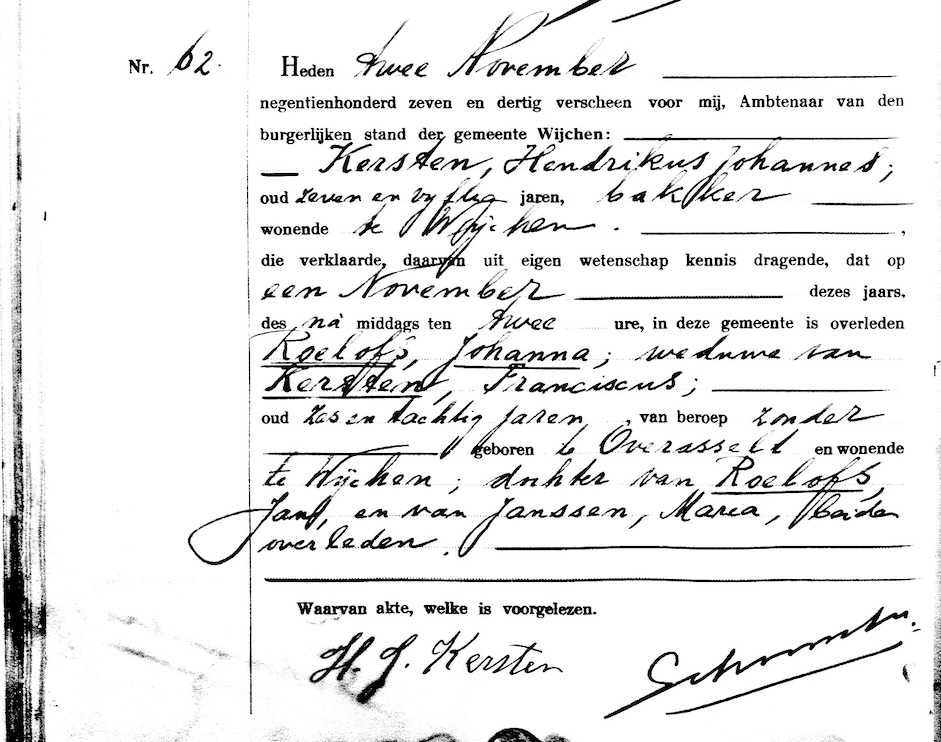 Nr. 62.
Heden twee November
negentienhonderd zeven en dertig verscheen voor mij, Ambtenaar van den
burgerlijken stand der gemeente Wijchen:
Kersten, Hendrikus Johannes;
oud zeven en vijftig jaren, bakker
wonende te Wijchen.
die verklaarde, daarvan uit eigen wetenschap kennis dragende, dat op
een November dezes jaars,
des na middags ten twee ure, in deze gemeente is overleden
Roelofs, Johanna; weduwe van
Kersten, Franciscus;
oud zes en tachtig jaren, van beroep zonder
geboren te Overasselt en wonende
te Wijchen; dochter van Roelofs,
Jan, en van Janssen, Maria, beiden
overleden.
Waarvan akte, welke is voorgelezen.
H. J. Kersten